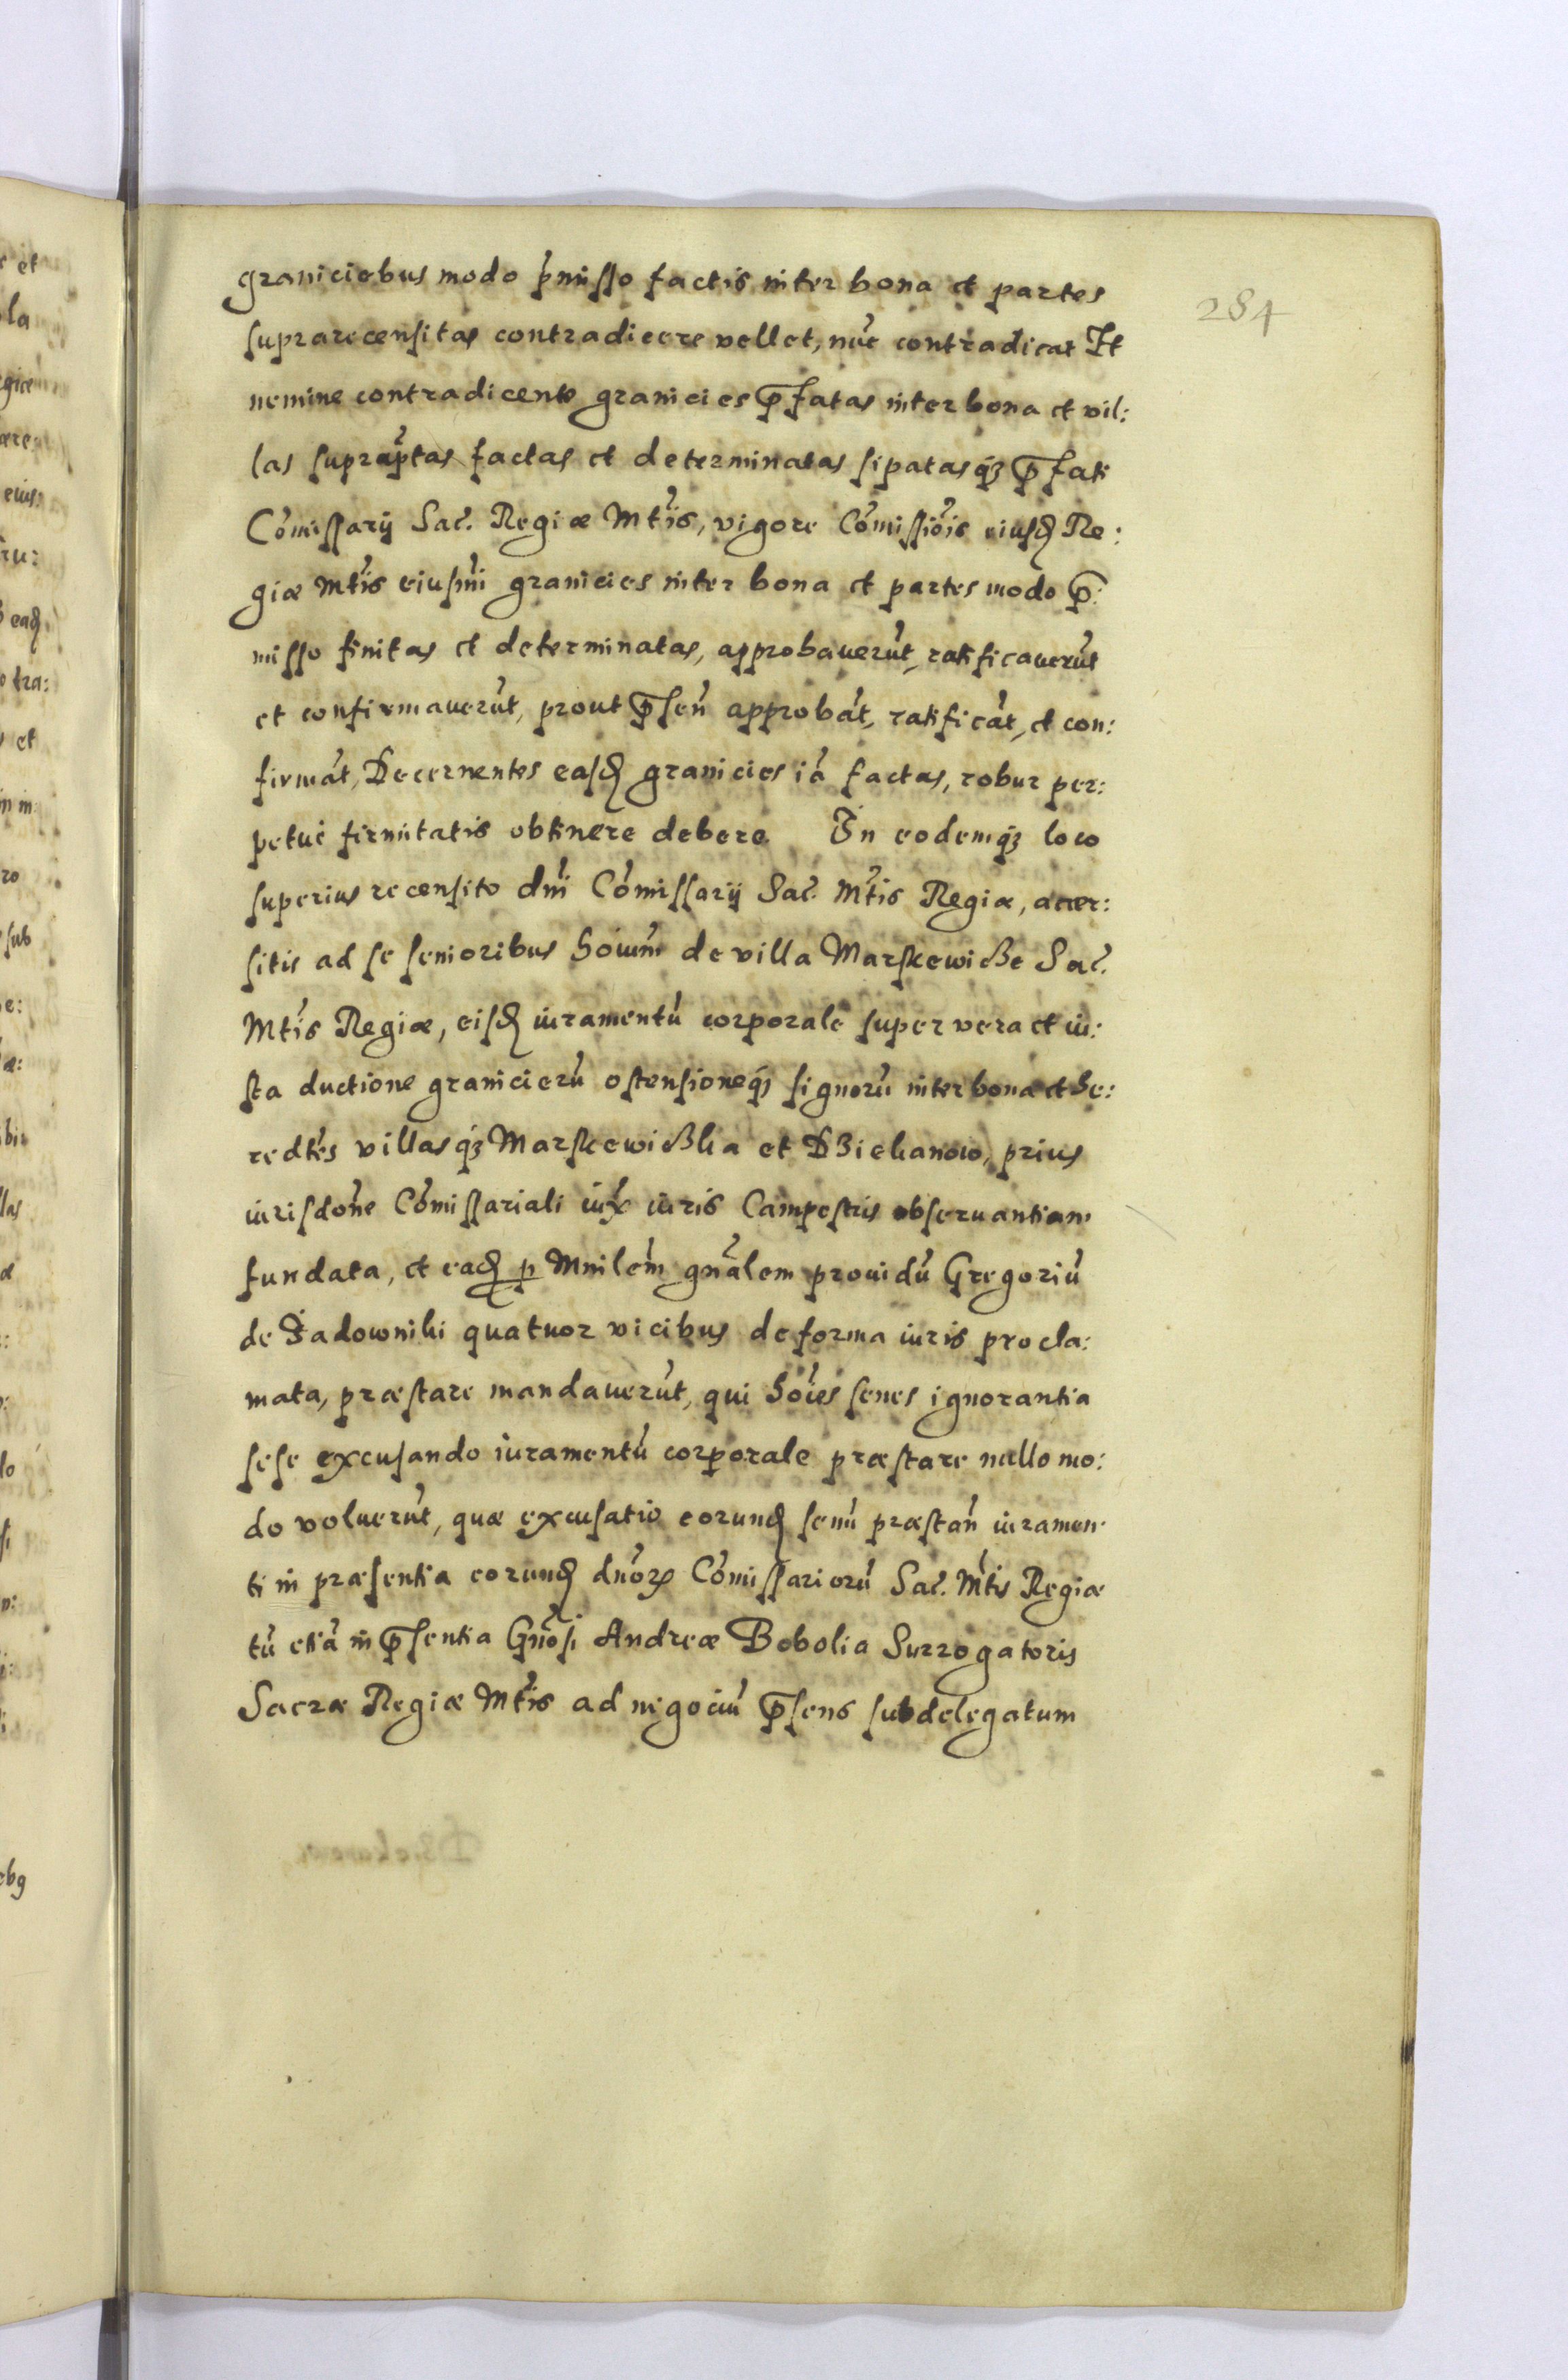 graniciebus modo p̃misso factis inter bona et partes
suprarecensitas contradicere vellet, nũc contradicat Et
nemine contradicente granicies p̃fatas inter bona et vil:
las suprap̃tas factas et determinatas sipatasq́ȝ p̃fati
Cõmissarij Sac̃. Regiæ Mt̃is, vigore Cõmissiõis eiusd Re:
giæ Mt̃is eiusm̃i granicies inter bona et partes modo p̃:
misso finitas et determinatas, approbauerũt, ratificauerũt
et confirmauerũt, prout p̃señ approbãt, ratificãt, et con:
firmãt, Decernentes easd granicies iã factas, robur per:
petuę firmitatis obtinere debere. In eodemq́ȝ loco
superius recensito dñi Cõmissarij Sac̃. Mt̃is Regiæ, accer:
sitis ad se senioribus hõium de villa Marskewicze Sac̃.
Mt̃is Regiæ, eisd iuramentũ corporale super vera et iu:
sta ductione granicierũ ostensioneq́ȝ signorũ inter bona et he:
redt̃es villasq́ȝ Marskewiczka et Dziekanow, prius
iurisdõne Cõmissariali iux̃ iuris Campestris obseruantiam
fundata, et ead p Mnilẽm gñalem prouidũ Gregoriũ
de Sadowniki quatuor vicibus de forma iuris procla:
mata, præstare mandauerũt, qui hõies senes ignorantia
sese excusando iuramentũ corporale præstare nullo mo:
do voluerũt, quæ excusatio eorund senũ præstañ iuramen:
ti in præsentia eorund dñorꝝ Cõmissariorũ Sac̃. Mt̃is Regiæ
tũ etiã in p̃sentia Gñosi Andreæ Bobolia Surrogatoris
Sacræ Regiæ Mt̃is ad negociũ p̃sens subdelegatum
284